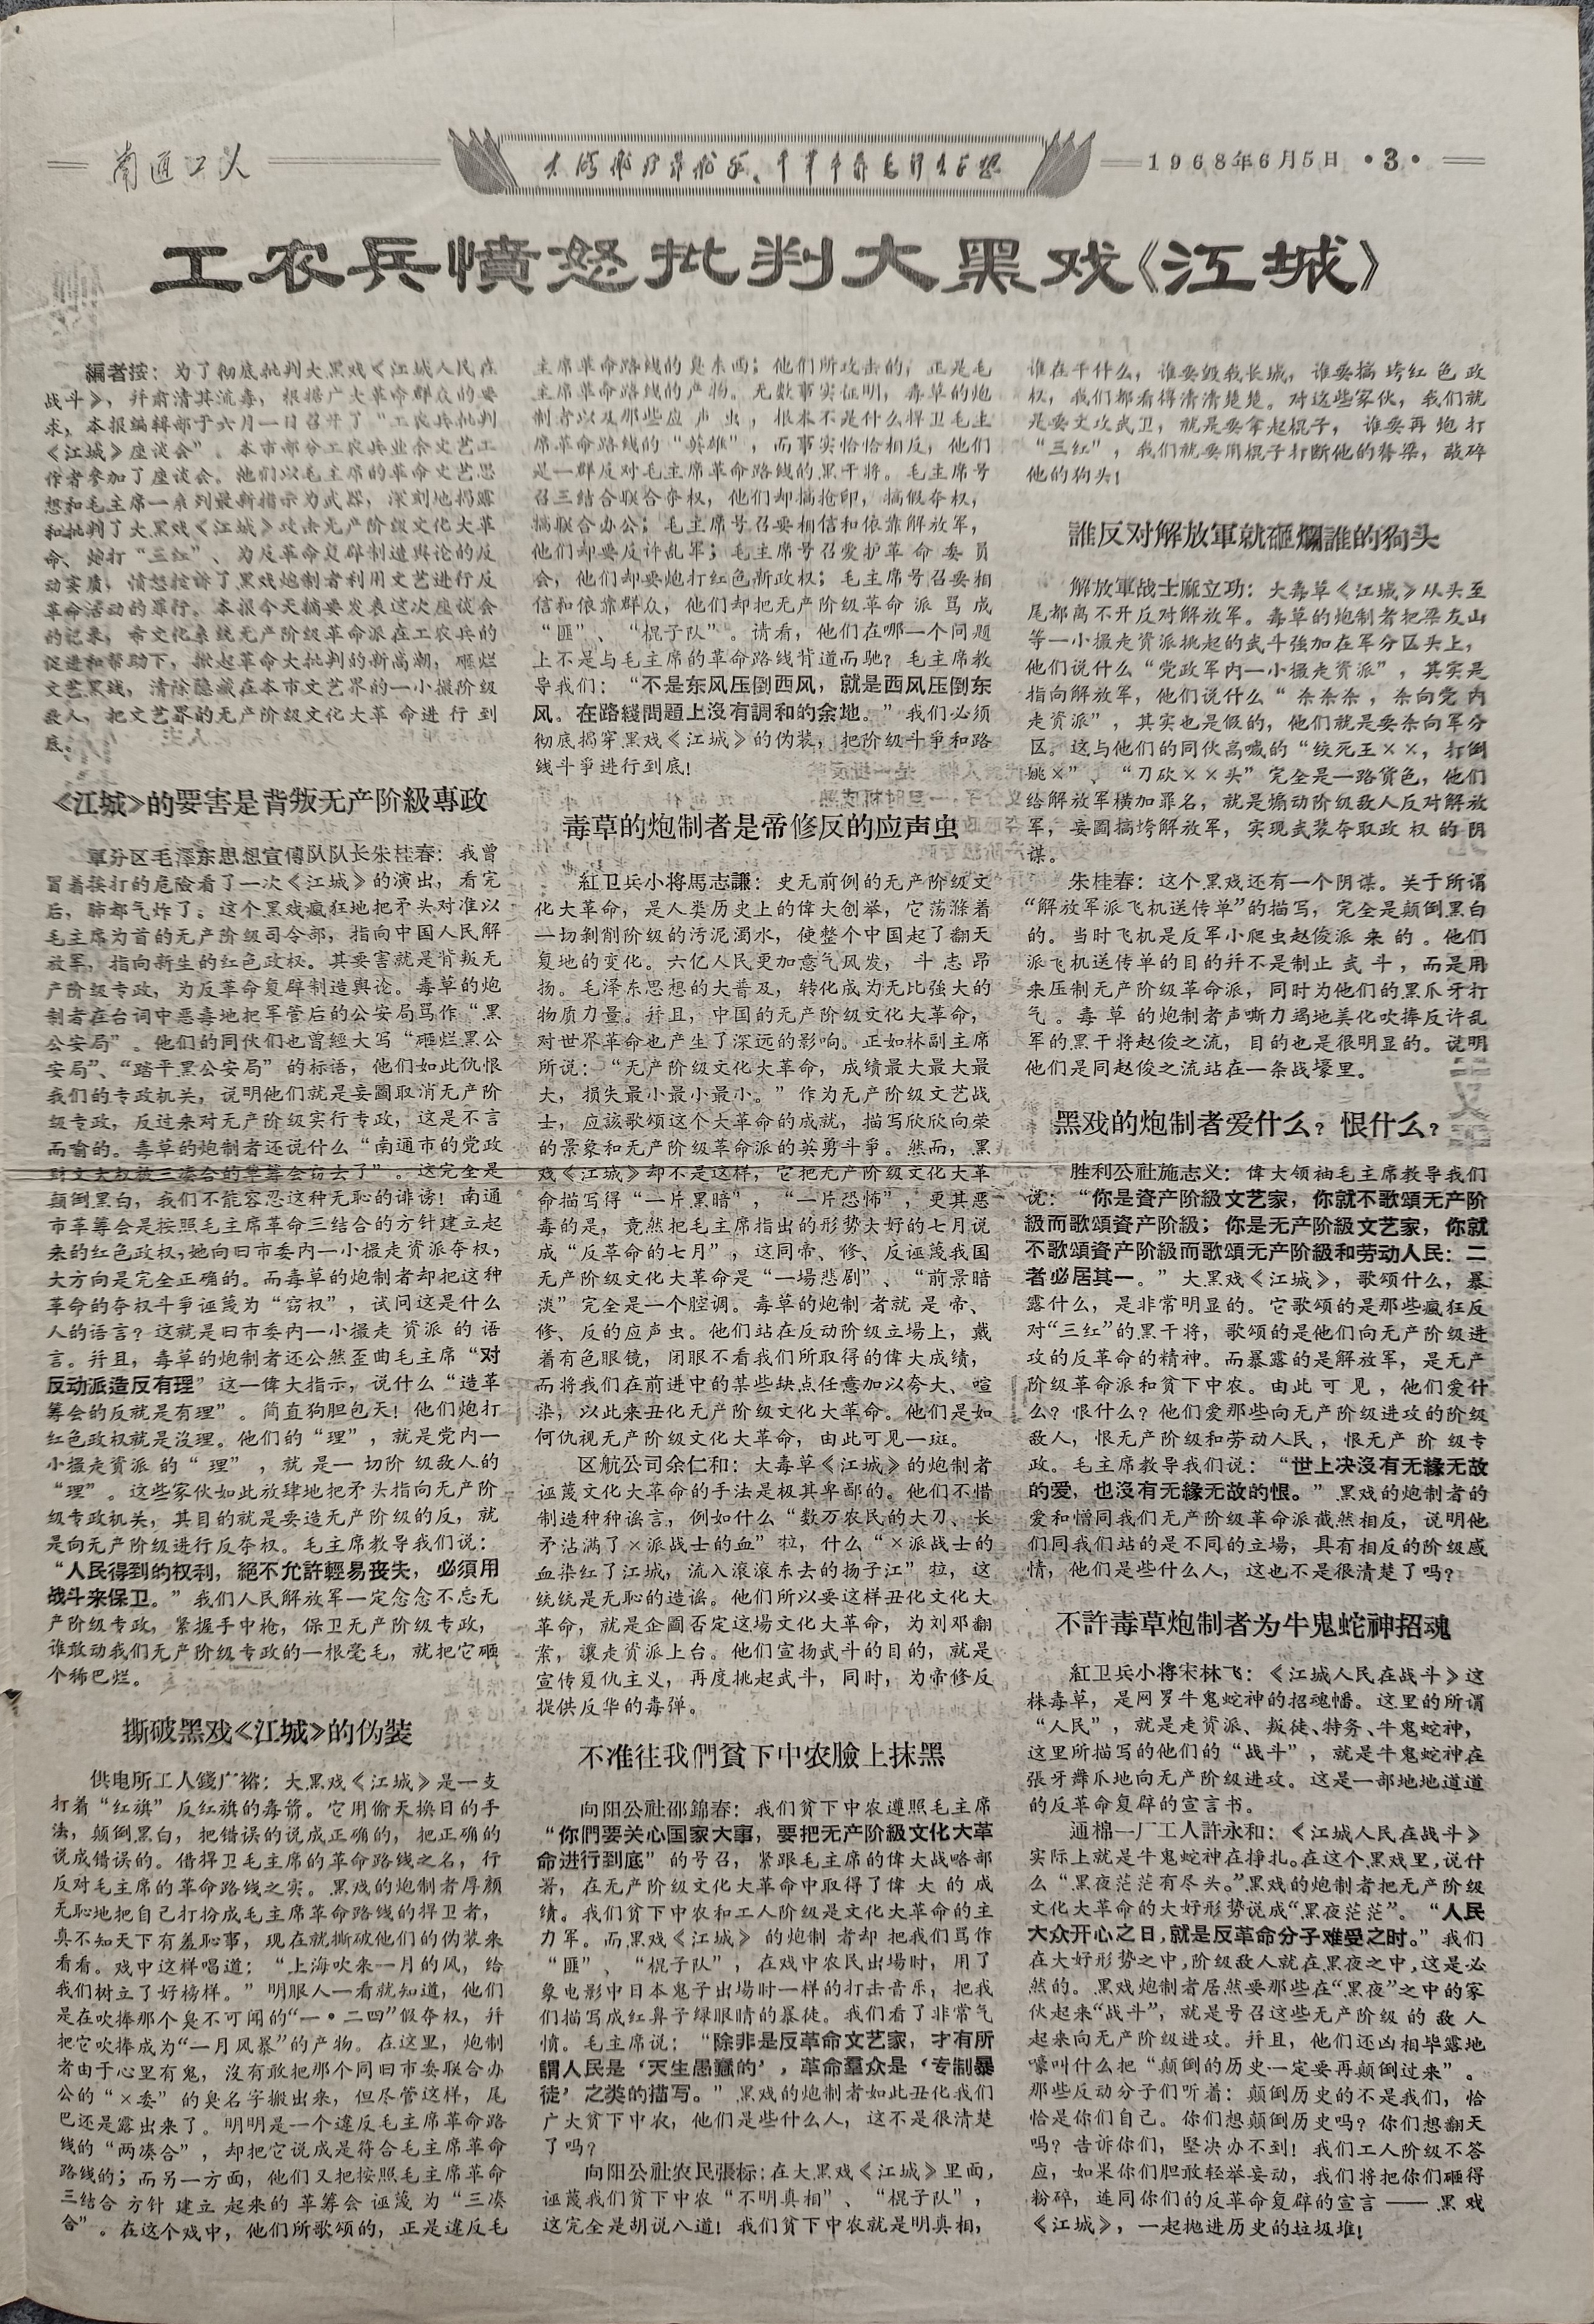 南通工人
1968年6月5日 ·3·
工农兵憤怒批判大黑戏《江城》
編者按：为了彻底批判大黑戏《江城人民在
战斗》，幷肃清其流毒，根据广大革命群众的要
求，本报编辑部于六月一日召开了“工农兵批判
《江城》座谈会”。本市部分工农兵业余文艺工
作者参加了座谈会。他们以毛主席的革命文艺思
想和毛主席一系列最新指示为武器，深刻地揭露
和批判了大黑戏《江城》攻击无产阶级文化大革
命、炮打“三红”、为反革命复辟制造舆论的反
动实质，愤怒控诉了黑戏炮制者利用文艺进行反
革命活动的罪行。本报今天摘要发表这次座谈会
的記录，希文化系统无产阶级革命派在工农兵的
促进和帮助下，掀起革命大批判的新高潮，砸烂
文艺黑线，清除隐藏在本市文艺界的一小撮阶级
敌人，把文艺界的无产阶级文化大革命进行到
底。
《江城》的要害是背叛无产阶級專政
軍分区毛澤东思想宣傳队队长朱桂春：我曾
冒着挨打的危险看了一次《江城》的演出，看完
后，肺都气炸了。这个黑戏瘋狂地把矛头对准以
毛主席为首的无产阶级司令部，指向中国人民解
放军，指向新生的红色政权。其要害就是背叛无
产阶级专政，为反革命复辟制造舆论。毒草的炮
制者在台词中恶毒地把军管后的公安局骂作“黑
公安局”。他们的同伙们也曾經大写“砸烂黑公
安局”、“踏平黑公安局”的标语，他们如此仇恨
我们的专政机关，说明他们就是妄圖取消无产阶
级专政，反过来对无产阶级实行专政，这是不言
而喻的。毒草的炮制者还说什么“南通市的党政
财文大权被三凑合的革筹会窃去了”。这完全是
颠倒黑白，我们不能容忍这种无恥的诽谤！南通
市革筹会是按照毛主席革命三结合的方针建立起
来的红色政权，她向旧市委内一小撮走資派夺权，
大方向是完全正确的。而毒草的炮制者却把这种
革命的夺权斗爭诬蔑为“窃权”，试问这是什么
人的语言？这就是旧市委内一小撮走資派的语
言。幷且，毒草的炮制者还公然歪曲毛主席“对
反动派造反有理”这一偉大指示，说什么“造革
筹会的反就是有理”。简直狗胆包天！他们炮打
红色政权就是沒理。他们的“理”，就是党内一
小撮走資派的“理”，就是一切阶级敌人的
“理”。这些家伙如此放肆地把矛头指向无产阶
级专政机关，其目的就是要造无产阶级的反，就
是向无产阶级进行反夺权。毛主席教导我们说：
“人民得到的权利，絕不允許輕易丧失，必須用
战斗来保卫。”我们人民解放军一定念念不忘无
产阶级专政，紧握手中枪，保卫无产阶级专政，
谁敢动我们无产阶级专政的一根毫毛，就把它砸
个稀巴烂。
撕破黑戏《江城》的伪装
供电所工人錢广裕：大黑戏《江城》是一支
打着“红旗”反红旗的毒箭。它用偷天换日的手
法，颠倒黑白，把错误的说成正确的，把正确的
说成错误的。借捍卫毛主席的革命路线之名，行
反对毛主席的革命路线之实。黑戏的炮制者厚颜
无恥地把自己打扮成毛主席革命路线的捍卫者，
真不知天下有羞恥事，现在就撕破他们的伪装来
看看。戏中这样唱道：“上海吹来一月的风，给
我们树立了好榜样。”明眼人一看就知道，他们
是在吹捧那个臭不可闻的“一·二四”假夺权，幷
把它吹捧成为“一月风暴”的产物。在这里，炮制
者由于心里有鬼，沒有敢把那个同旧市委联合办
公的“×委”的臭名字搬出来，但尽管这样，尾
巴还是露出来了。明明是一个違反毛主席革命路
线的“两凑合”，却把它说成是符合毛主席革命
路线的；而另一方面，他们又把按照毛主席革命
三结合方针建立起来的革筹会诬蔑为“三凑
合”。在这个戏中，他们所歌颂的，正是違反毛
主席革命路线的臭东西；他们所攻击的，正是毛
主席革命路线的产物。无数事实证明，毒草的炮
制者以及那些应声虫，根本不是什么捍卫毛主
席革命路线的“英雄”，而事实恰恰相反，他们
是一群反对毛主席革命路线的黑干将。毛主席号
召三结合联合夺权，他们却搞抢印，搞假夺权，
搞联合办公；毛主席号召要相信和依靠解放军，
他们却要反许乱军；毛主席号召爱护革命委员
会，他们却要炮打红色新政权；毛主席号召要相
信和依靠群众，他们却把无产阶级革命派骂成
“匪”、“棍子队”。请看，他们在哪一个问题
上不是与毛主席的革命路线背道而驰？毛主席教
导我们：“不是东风压倒西风，就是西风压倒东
风。在路綫問題上沒有調和的余地。”我们必须
彻底揭穿黑戏《江城》的伪装，把阶级斗爭和路
线斗爭进行到底！
毒草的炮制者是帝修反的应声虫
紅卫兵小将馬志謙：史无前例的无产阶级文
化大革命，是人类历史上的偉大创举，它荡滌着
一切剝削阶级的污泥濁水，使整个中国起了翻天
复地的变化。六亿人民更加意气风发，斗志昂
扬。毛泽东思想的大普及，转化成为无比強大的
物质力量。幷且，中国的无产阶级文化大革命，
对世界革命也产生了深远的影响。正如林副主席
所说：“无产阶级文化大革命，成绩最大最大最
大，损失最小最小最小。”作为无产阶级文艺战
士，应該歌颂这个大革命的成就，描写欣欣向荣
的景象和无产阶级革命派的英勇斗爭。然而，黑
戏《江城》却不是这样，它把无产阶级文化大革
命描写得“一片黑暗”，“一片恐怖”，更其恶
毒的是，竟然把毛主席指出的形势大好的七月说
成“反革命的七月”，这同帝、修、反诬蔑我国
无产阶级文化大革命是“一場悲剧”、“前景暗
淡”完全是一个腔调。毒草的炮制者就是帝、
修、反的应声虫。他们站在反动阶级立場上，戴
着有色眼镜，闭眼不看我们所取得的偉大成绩，
而将我们在前进中的某些缺点任意加以夸大、喧
染，以此来丑化无产阶级文化大革命。他们是如
何仇视无产阶级文化大革命，由此可见一斑。
区航公司余仁和：大毒草《江城》的炮制者
诬蔑文化大革命的手法是极其卑鄙的。他们不惜
制造种种谣言，例如什么“数万农民的大刀、长
矛沾满了×派战士的血”啦，什么“×派战士的
血染红了江城，流入滚滚东去的扬子江”啦，这
统统是无恥的造谣。他们所以要这样丑化文化大
革命，就是企圖否定这場文化大革命，为刘邓翻
案，讓走資派上台。他们宣扬武斗的目的，就是
宣传复仇主义，再度挑起武斗，同时，为帝修反
提供反华的毒弹。
不准往我們貧下中农臉上抹黑
向阳公社邵錦春：我们贫下中农遵照毛主席
“你們要关心国家大事，要把无产阶級文化大革
命进行到底”的号召，紧跟毛主席的偉大战略部
署，在无产阶级文化大革命中取得了偉大的成
绩。我们贫下中农和工人阶级是文化大革命的主
力军。而黑戏《江城》的炮制者却把我们骂作
“匪”、“棍子队”，在戏中农民出場时，用了
象电影中日本鬼子出場时一样的打击音乐，把我
们描写成红鼻子绿眼睛的暴徒。我们看了非常气
愤。毛主席说：“除非是反革命文艺家，才有所
謂人民是‘天生愚蠢的’，革命羣众是‘专制暴
徒’之类的描写。”黑戏的炮制者如此丑化我们
广大贫下中农，他们是些什么人，这不是很清楚
了吗？
向阳公社农民張标：在大黑戏《江城》里面，
诬蔑我们贫下中农“不明真相”、“棍子队”，
这完全是胡说八道！我们贫下中农就是明真相，
谁在干什么，谁要毁我长城，谁要搞垮红色政
权，我们都看得清清楚楚。对这些家伙，我们就
是要文攻武卫，就是要拿起棍子，谁要再炮打
“三红”，我们就要用棍子打断他的脊梁，敲碎
他的狗头！
誰反对解放軍就砸爛誰的狗头
解放軍战士麻立功：大毒草《江城》从头至
尾都离不开反对解放军。毒草的炮制者把梁友山
等一小撮走资派挑起的武斗強加在军分区头上，
他们说什么“党政军内一小撮走资派”，其实是
指向解放军，他们说什么“杀杀杀，杀向党内
走资派”，其实也是假的，他们就是要杀向军分
区。这与他们的同伙高喊的“绞死王××，打倒
姚×”、“刀砍××头”完全是一路貨色，他们
给解放军横加罪名，就是煽动阶级敌人反对解放
军，妄圖搞垮解放军，实现武装夺取政权的阴
谋。
朱桂春：这个黑戏还有一个阴谋。关于所谓
“解放军派飞机送传单”的描写，完全是颠倒黑白
的。当时飞机是反军小爬虫赵俊派来的。他们
派飞机送传单的目的幷不是制止武斗，而是用
来压制无产阶级革命派，同时为他们的黑爪牙打
气。毒草的炮制者声嘶力遏地美化吹捧反许乱
军的黑干将赵俊之流，目的也是很明显的。说明
他们是同赵俊之流站在一条战壕里。
黑戏的炮制者爱什么？恨什么？
胜利公社施志义：偉大领袖毛主席教导我们
说：“你是資产阶級文艺家，你就不歌頌无产阶
級而歌頌資产阶級；你是无产阶級文艺家，你就
不歌頌資产阶級而歌頌无产阶級和劳动人民：二
者必居其一。”大黑戏《江城》，歌颂什么，暴
露什么，是非常明显的。它歌颂的是那些瘋狂反
对“三红”的黑干将，歌颂的是他们向无产阶级进
攻的反革命的精神。而暴露的是解放军，是无产
阶级革命派和贫下中农。由此可见，他们爱什
么？恨什么？他们爱那些向无产阶级进攻的阶级
敌人，恨无产阶级和劳动人民，恨无产阶级专
政。毛主席教导我们说：“世上决沒有无緣无故
的爱，也沒有无緣无故的恨。”黑戏的炮制者的
爱和憎同我们无产阶级革命派截然相反，说明他
们同我们站的是不同的立場，具有相反的阶级感
情，他们是些什么人，这也不是很清楚了吗？
不許毒草炮制者为牛鬼蛇神招魂
紅卫兵小将宋林飞：《江城人民在战斗》这
株毒草，是网罗牛鬼蛇神的招魂幡。这里的所谓
“人民”，就是走資派、叛徒、特务、牛鬼蛇神，
这里所描写的他们的“战斗”，就是牛鬼蛇神在
張牙舞爪地向无产阶级进攻。这是一部地地道道
的反革命复辟的宣言书。
通棉一厂工人許永和：《江城人民在战斗》
实际上就是牛鬼蛇神在挣扎。在这个黑戏里，说什
么“黑夜茫茫有尽头。”黑戏的炮制者把无产阶级
文化大革命的大好形势说成“黑夜茫茫”。“人民
大众开心之日，就是反革命分子难受之时。”我们
在大好形势之中，阶级敌人就在黑夜之中，这是必
然的。黑戏炮制者居然要那些在“黑夜”之中的家
伙起来“战斗”，就是号召这些无产阶级的敌人
起来向无产阶级进攻。幷且，他们还凶相毕露地
嚎叫什么把“颠倒的历史一定要再颠倒过来”。
那些反动分子们听着：颠倒历史的不是我们，恰
恰是你们自己。你们想颠倒历史吗？你们想翻天
吗？告诉你们，堅决办不到！我们工人阶级不答
应，如果你们胆敢轻举妄动，我们将把你们砸得
粉碎，連同你们的反革命复辟的宣言——黑戏
《江城》，一起抛进历史的垃圾堆！